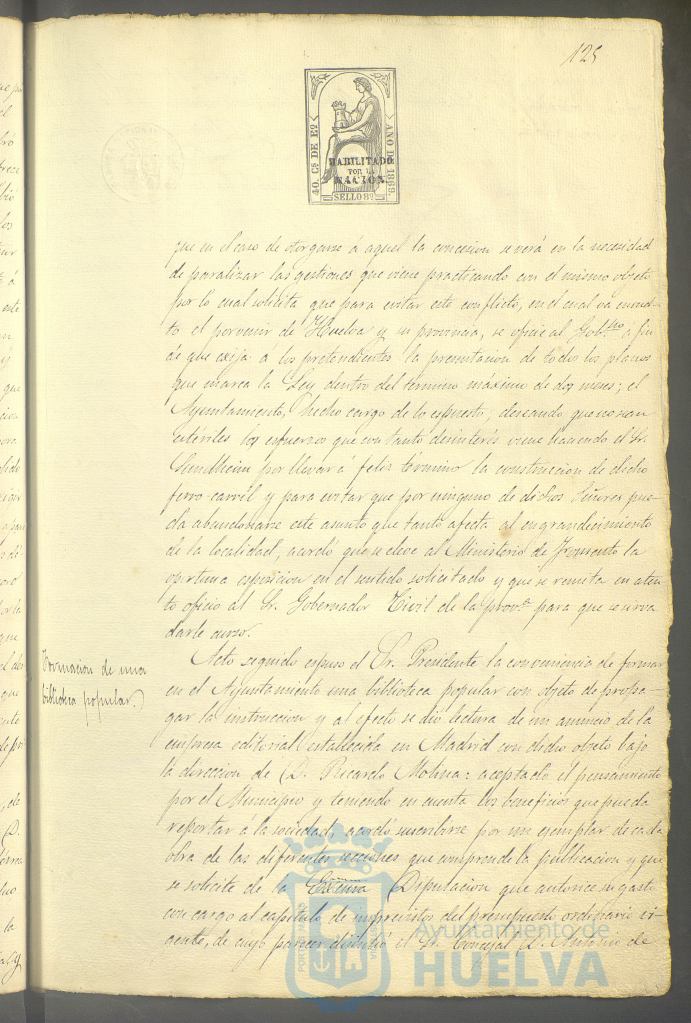 125
40. Cs DE Eo
AÑO DE 1869
HABILITADO
POR LA
NACION.
SELLO 8º
que en el caso de otorgarse á aquel la concesion se verá en la necesidad
de paralizar las gestiones que viene practicando con el mismo objeto
por lo cual solicita que para evitar este conflicto, en el cual vá envuel-
to el porvenir de Huelva y su provincia, se oficie al Gobno a fin
de que exija a los pretendientes la presentacion de todos los planos
que marca la Ley dentro del termino máximo de dos meses; el
Ayuntamiento, hecho cargo de lo espuesto, deseando que no sean
estériles los esfuerzos que con tanto desinterés viene haciendo el Sr.
Sundheim por llevar á feliz término la construccion de dicho
ferro-carril y para evitar que por ninguno de dichos Señores pue-
da abandonarse este asunto que tanto afecta al engrandecimiento
de la localidad, acordó que se eleve al Ministerio de Fomento la
oportuna esposicion en el sentido solicitado y que se remita en aten-
to oficio al Sr. Gobernador Civil de la prova para que se sirva
darle curso.
Formacion de una
biblioteca popular.
Acto seguido espuso el Sr. Presidente la conveniencia de formar
en el Ayuntamiento una biblioteca popular con objeto de propa-
gar la instruccion y al efecto se dió lectura de un anuncio de la
empresa editorial establecida en Madrid con dicho objeto bajo
la direccion de D. Ricardo Molina: aceptado el pensamiento
por el Municipio y teniendo en cuenta los beneficios que pueda
reportar á la sociedad, acordó suscribirse por un ejemplar de cada
obra de las diferentes secciones que comprende la publicacion y que
se solicite de la Excma Diputacion que autorice su gasto
con cargo al capitulo de imprevistos del presupuesto ordinario vi-
gente, de cuyo parecer disintió el Sr. Concejal D. Antonio de
Ayuntamiento de
HUELVA